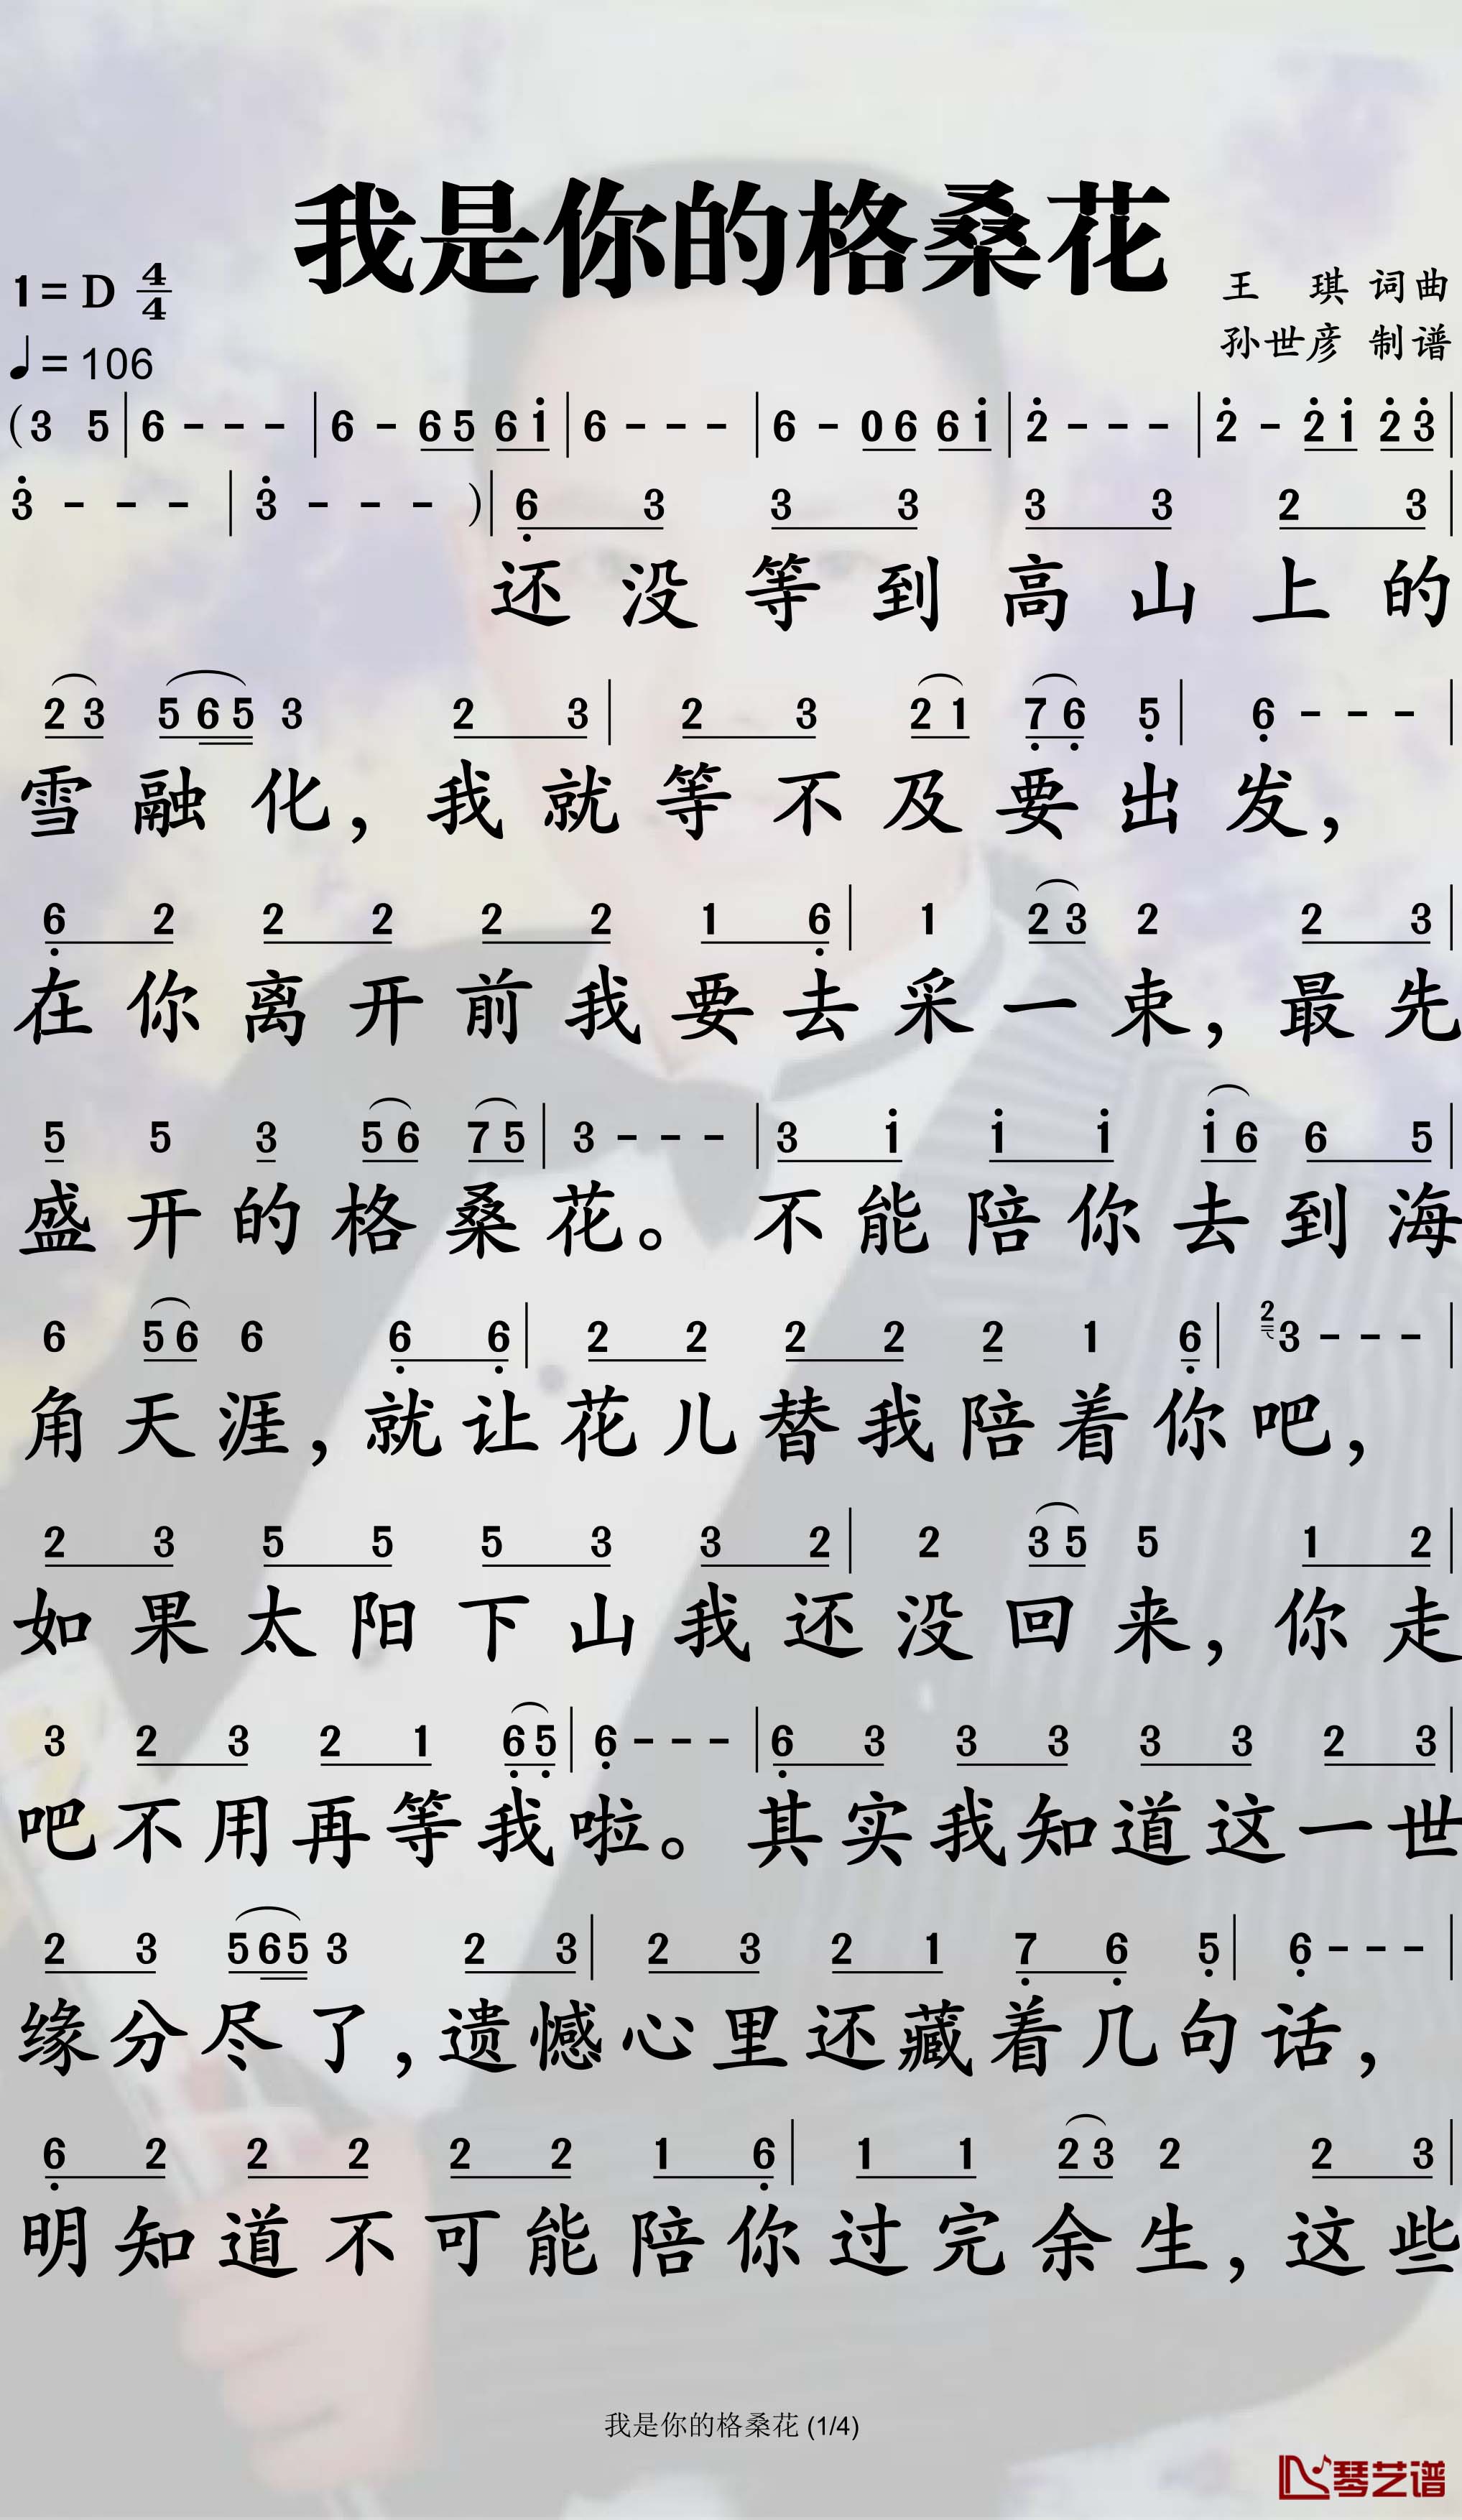 我是你的格桑花
1= D 4/4
王 琪 词曲
♩= 106
孙世彦 制谱
(3 5 | 6 - - - | 6 - 6 5 6 i | 6 - - - | 6 - 0 6 6 i | 2̇ - - - | 2̇ - 2̇ i 2̇ 3̇ |
3̇ - - - | 3̇ - - - ) | 6̣ 3 3 3 3 3 2 3 |
还没等到高山上的
2 3 5 6 5 3 2 3 | 2 3 2 1 7̣ 6̣ 5̣ | 6̣ - - - |
雪融化，我就等不及要出发，
6̣ 2 2 2 2 2 1 6̣ | 1 2 3 2 2 3 |
在你离开前我要去采一束，最先
5 5 3 5 6 7 5 | 3 - - - | 3 i i i i 6 6 5 |
盛开的格桑花。不能陪你去到海
6 5 6 6 6̣ 6̣ | 2 2 2 2 2 1 6̣ | 2 3 - - - |
角天涯，就让花儿替我陪着你吧，
2 3 5 5 5 3 3 2 | 2 3 5 5 1 2 |
如果太阳下山我还没回来，你走
3 2 3 2 1 6̣ 5̣ | 6̣ - - - | 6̣ 3 3 3 3 3 2 3 |
吧不用再等我啦。其实我知道这一世
2 3 5 6 5 3 2 3 | 2 3 2 1 7̣ 6̣ 5̣ | 6̣ - - - |
缘分尽了，遗憾心里还藏着几句话，
6̣ 2 2 2 2 2 1 6̣ | 1 1 2 3 2 2 3 |
明知道不可能陪你过完余生，这些
我是你的格桑花 (1/4)
琴艺谱